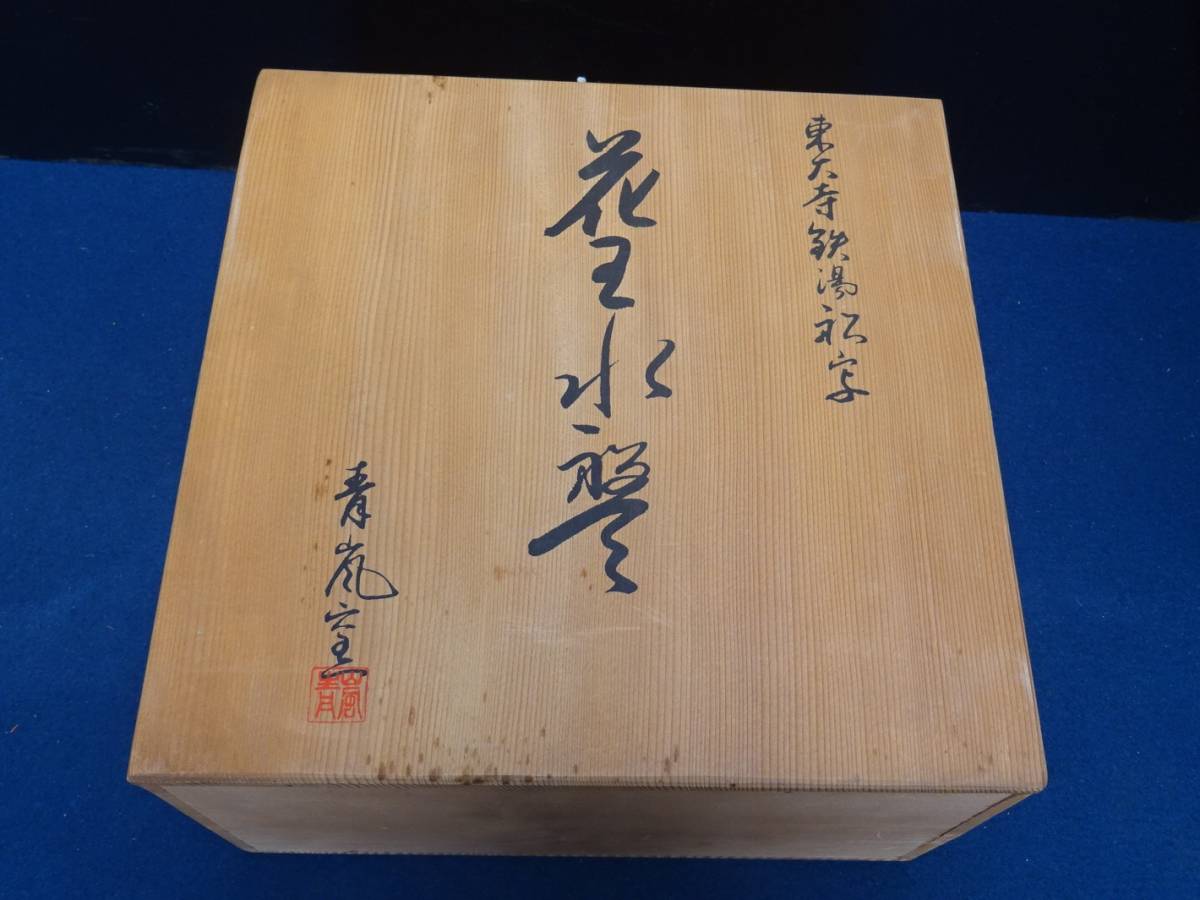 東大寺鉄湯船写
花王水盤
青嵐窯
青嵐